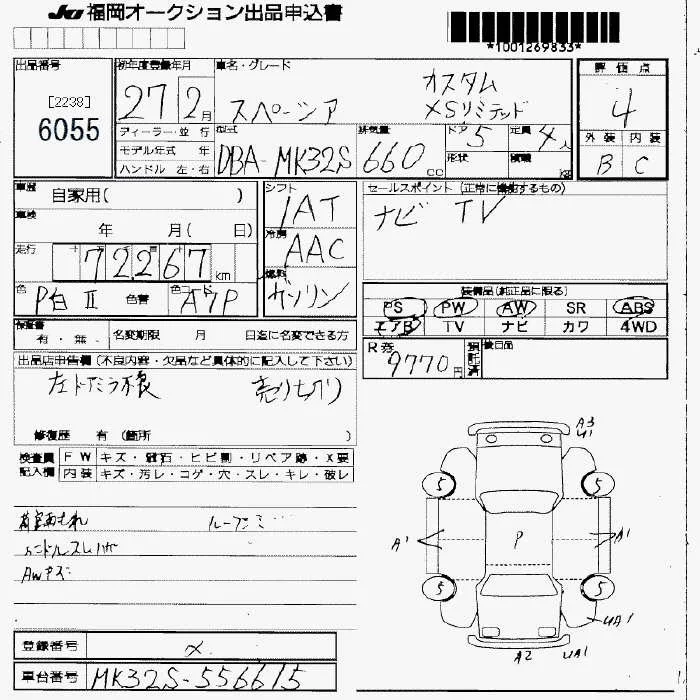 JU 福岡オークション出品申込書
*1001269833*
出品番号
[2238]
6055
初年度登録年月
27 2月
車名・グレード
スペーシア
カスタム
XSリミテッド
評価点
4
外装 内装
B C
ディーラー・並行
モデル年式 年
ハンドル 左・右
型式
DBA-MK32S
排気量
660cc
ドア 5
形状
定員 4人
積載 kg
車歴
自家用( )
車検
年 月( 日)
走行
72267km
色
P白Ⅱ
色替
色コード
A7P
シフト
IAT
冷房
AAC
燃料
ガソリン
セールスポイント(正常に機能するもの)
ナビ TV
装備品(純正品に限る)
PS PW AW SR ABS
エアB TV ナビ カワ 4WD
有・無 名変期限 月 日迄に名変できる方
R券
9770円
預託済
後日品
出品店申告欄(不良内容・欠品など具体的に記入して下さい)
左ドアミラ不良 売り切り
修復歴 有(箇所 )
検査員記入欄
FW キズ・飛石・ヒビ割・リペア跡・X要
内装 キズ・汚レ・コゲ・穴・スレ・キレ・破レ
ハンドルスレ
AWキズ
A3
U1
5 5
A1 P A1
5 5
UA1
A2 UA1
登録番号
車台番号
MK32S-556615